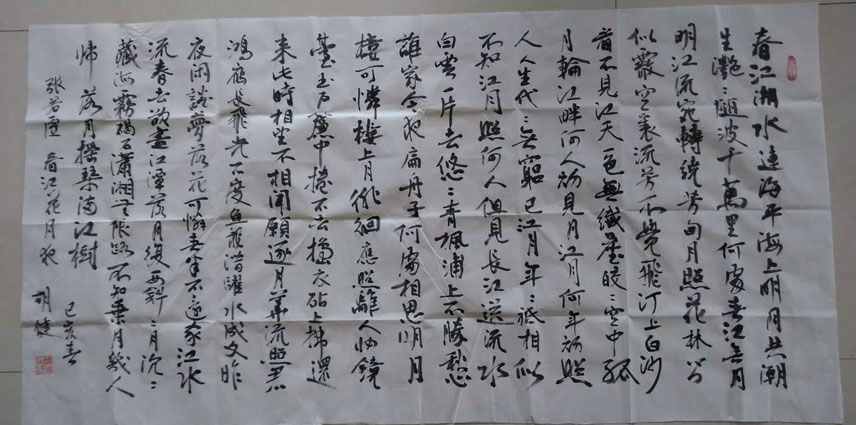 春江潮水連海平海上明月共潮
生灩〻隨波千萬里何處春江無月
明江流宛轉繞芳甸月照花林皆
似霰空裏流芳不覺飛汀上白沙
看不見江天一色無纖塵皎〻空中孤
月輪江畔何人初見月江月何年初照
人人生代〻無窮已江月年〻祇相似
不知江月照何人但見長江送流水
白雲一片去悠〻青楓浦上不勝愁
誰家今夜扁舟子何處相思明月
樓可憐樓上月徘徊應照離人妝鏡
臺玉戶簾中捲不去搗衣砧上拂還
来此時相望不相聞願逐月華流照君
鴻雁長飛光不度魚龍潛躍水成文昨
夜閑潭夢落花可憐春半不還家江水
流春去欲盡江潭落月復西斜〻月沉〻
藏海霧碣石瀟湘無限路不知乘月幾人
歸落月搖情滿江樹 己亥春
張若虛 春江花月夜 胡